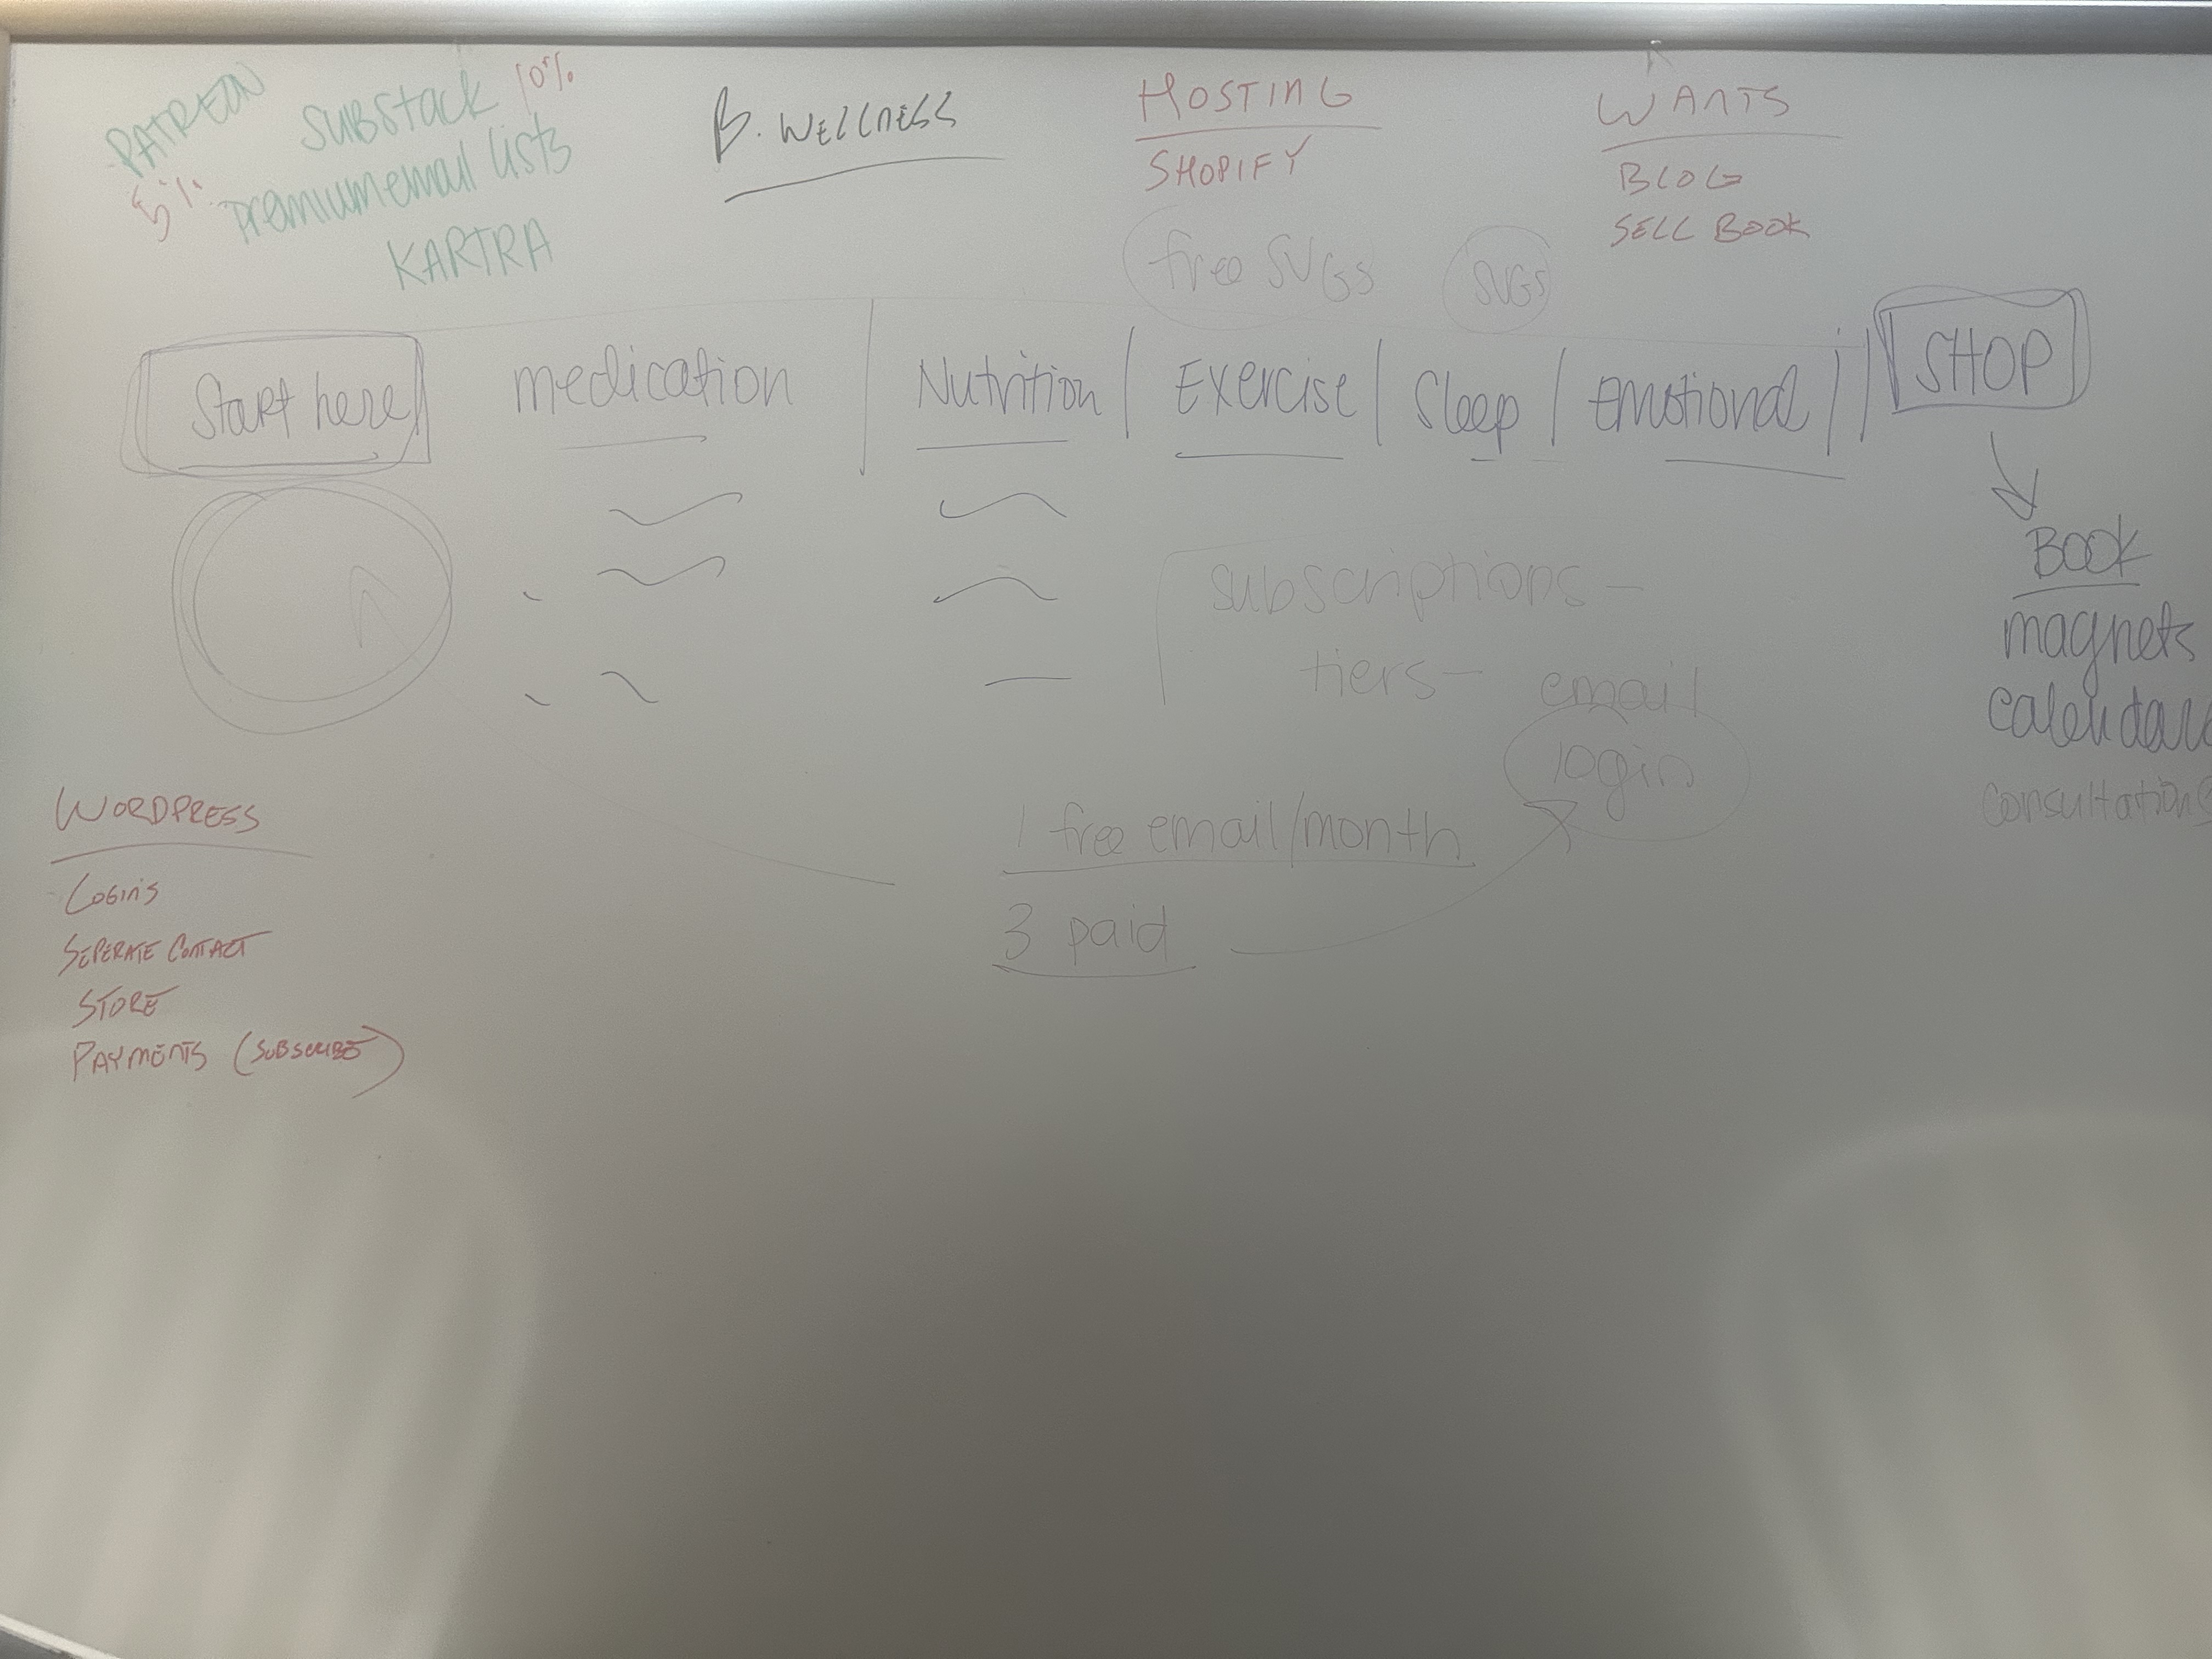 PATREON
5%
SUBStack 10%
premium email lists
KARTRA
B. WELLNESS
HOSTING
SHOPIFY
WANTS
BLOG
SELL BOOK
free SVGs
SVGS
Start here
medication
Nutrition
Exercise
Sleep
Emotional
SHOP
BOOK
magnets
calendars
consultations
subscriptions-
tiers- email
login
1 free email/month
3 paid
WORDPRESS
LOGINS
SEPERATE CONTACT
STORE
PAYMENTS (SUBSCRIBE)